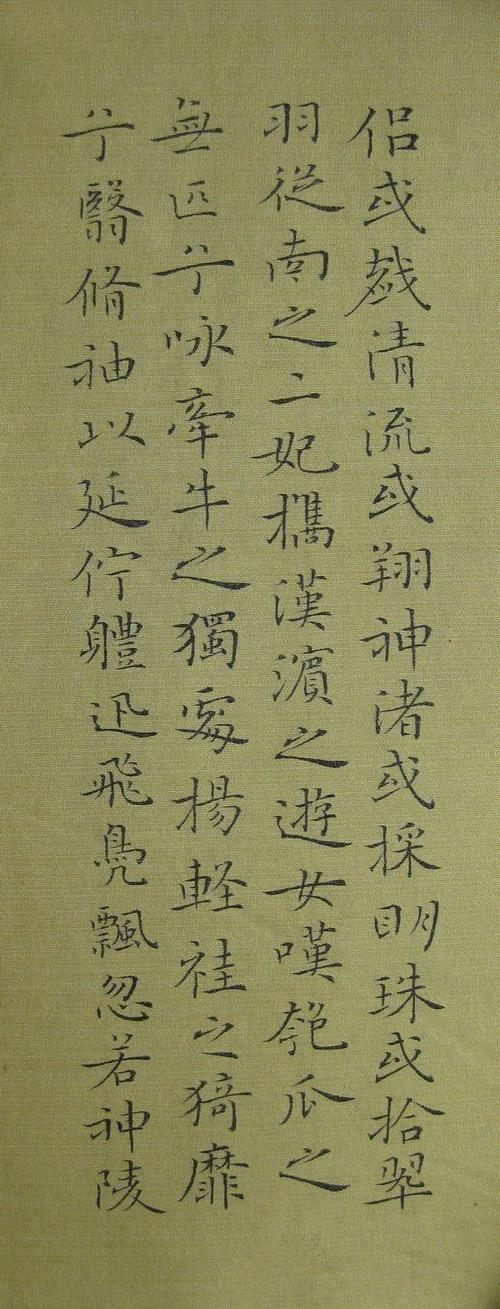 侣或戱清流或翔神渚或採明珠或拾翠
羽從南之二妃攜漢濵之遊女嘆匏瓜之
無匹兮咏牽牛之獨處楊軽袿之猗靡
兮翳脩袖以延佇體迅飛鳧飄忽若神陵